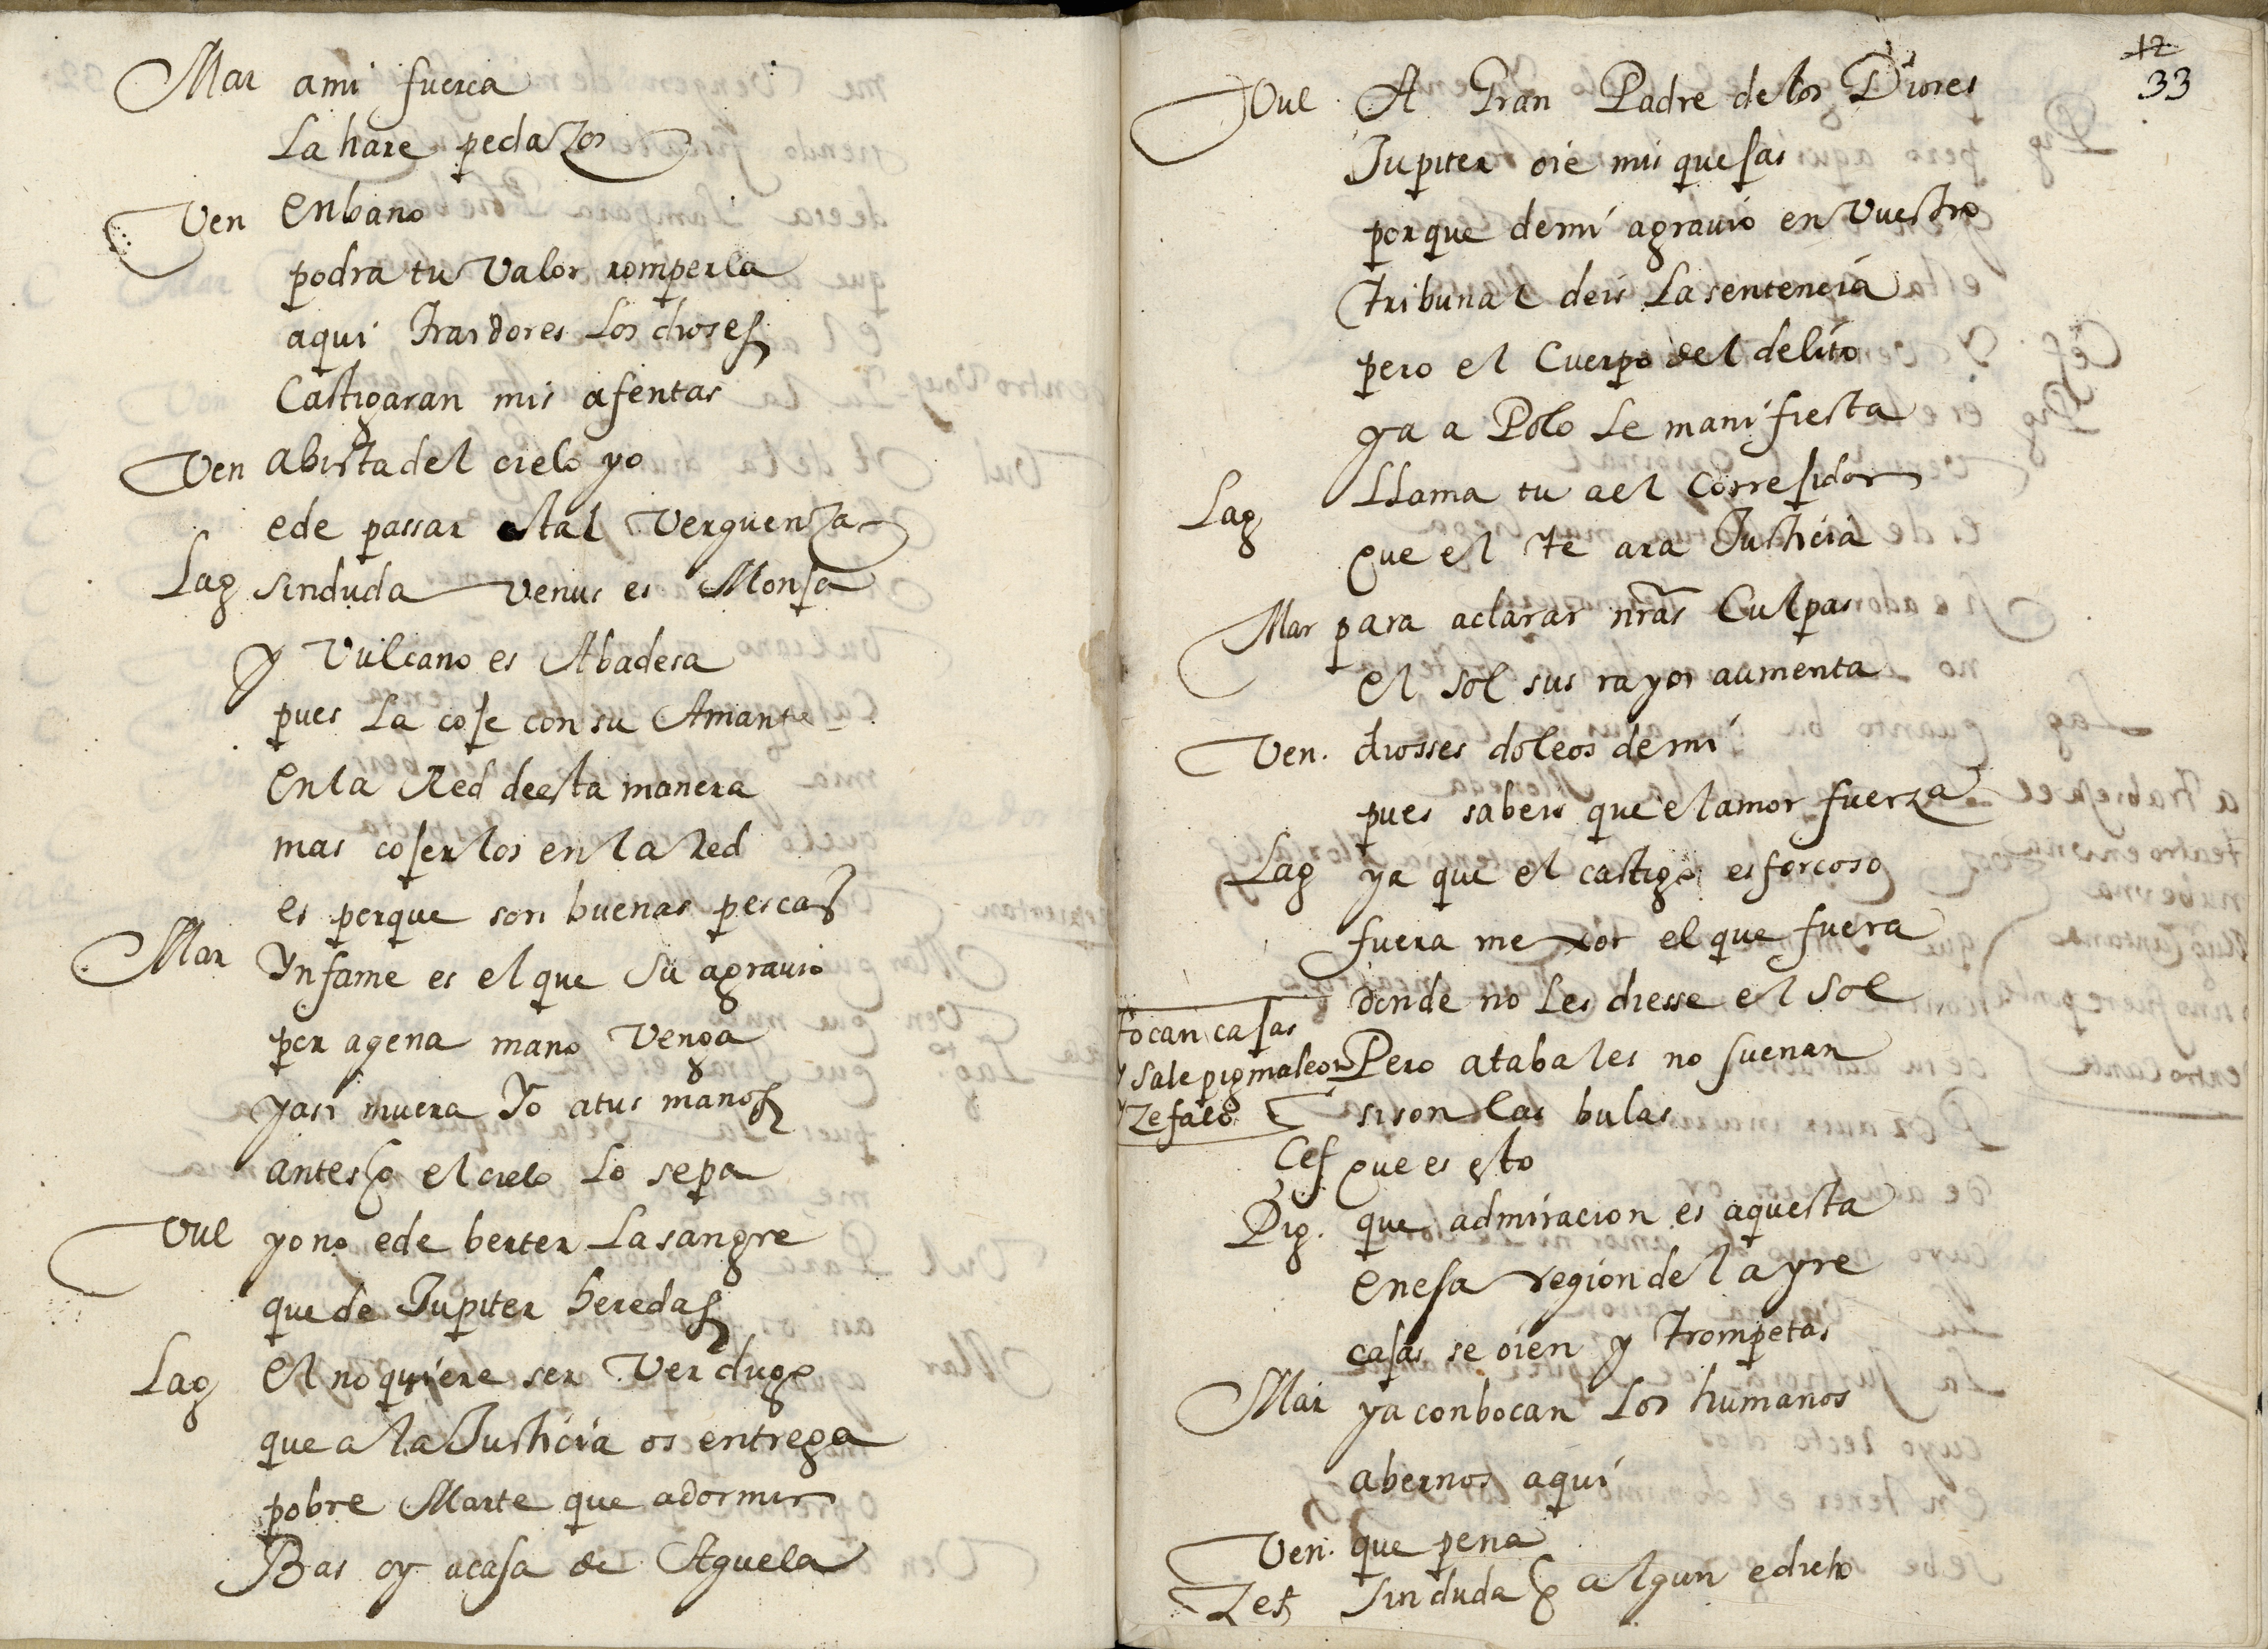 Mar ami fuerça
La hare pedazos
Ven enbano
podra tu Valor romperla
aqui traidores Los dioses
Castigaran mis afentas
Ven abistadel cielo yo
ede passar tal Verguenza
Lag sinduda Venus es Monja
y Vulcano es Abadesa
pues La coje con su Amante
en la Red deesta manera
mas cojerlos en la Red
es porque son buenas pescas
Mar Ynfame es el que su agrauio
por agena mano Venga
yasi muera Yo atus manos
antes q el cielo Lo sepa
Vul yo no ede berter La sangre
que de Jupiter heredas
Lag el no quiere ser Verdugo
que a la Justicia os entrega
pobre Marte que adormir
Bas oy acasa de Aguela
12
33
Vul A Gran Padre delos Dioses
Jupiter oie mis quejas
porque demi agrauio en Vuestro
tribunal deis La sentencia
pero el Cuerpo del delito
ya a Polo Le manifiesta
Lag LLama tu ael Correjidor
que el te ara Justicia
Mar para aclarar nrãs Culpas
el sol sus rayos aumenta
Ven. diosses doleos demi
pues sabeis que el amor fuerza
Lag ya que el castigo esforçoso
fuera mexor el que fuera
donde no Les diesse el Sol
tocan cajas
y sale pigmaleon
y Zefalo
Pero atabales no suenan
si son las bulas
Cef que es esto
Pig. que admiracion es aquesta
enesa region del ayre
cajas se oien y trompetas
Mar ya conbocan Los humanos
abernos aqui
Ven. que pena
Zef sinduda q algun edicto